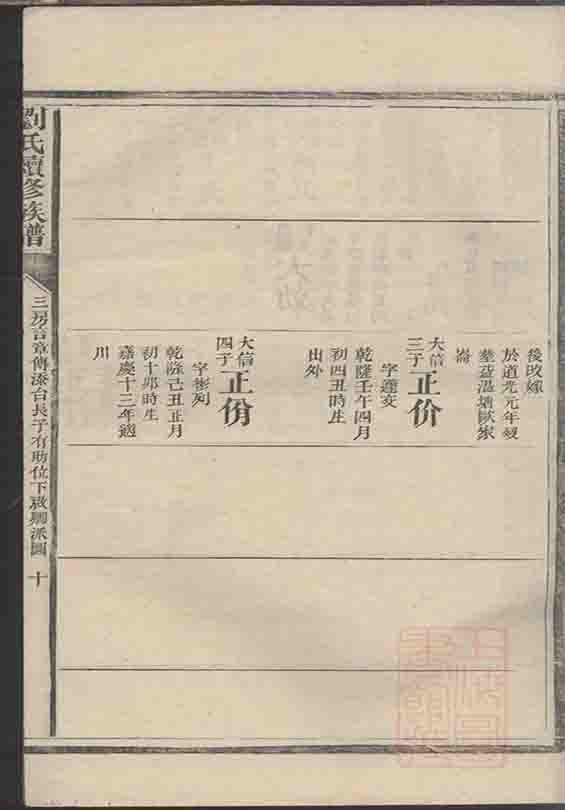 後改嫁
於道光元年歿
葬益溫塘歐家
崙
大信
三子
正价
字蓮友
乾隆壬午四月
初四丑時生
出外
大信
四子
正佾
字衡列
乾隆己丑正月
初十卯時生
嘉慶十三年適
川
劉氏續修族譜
三房言章傳添台長子有助位下啟駟派圖
十